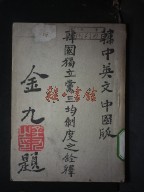 韓中英文中國版
韓國獨立黨三均制度之詮釋
金九題